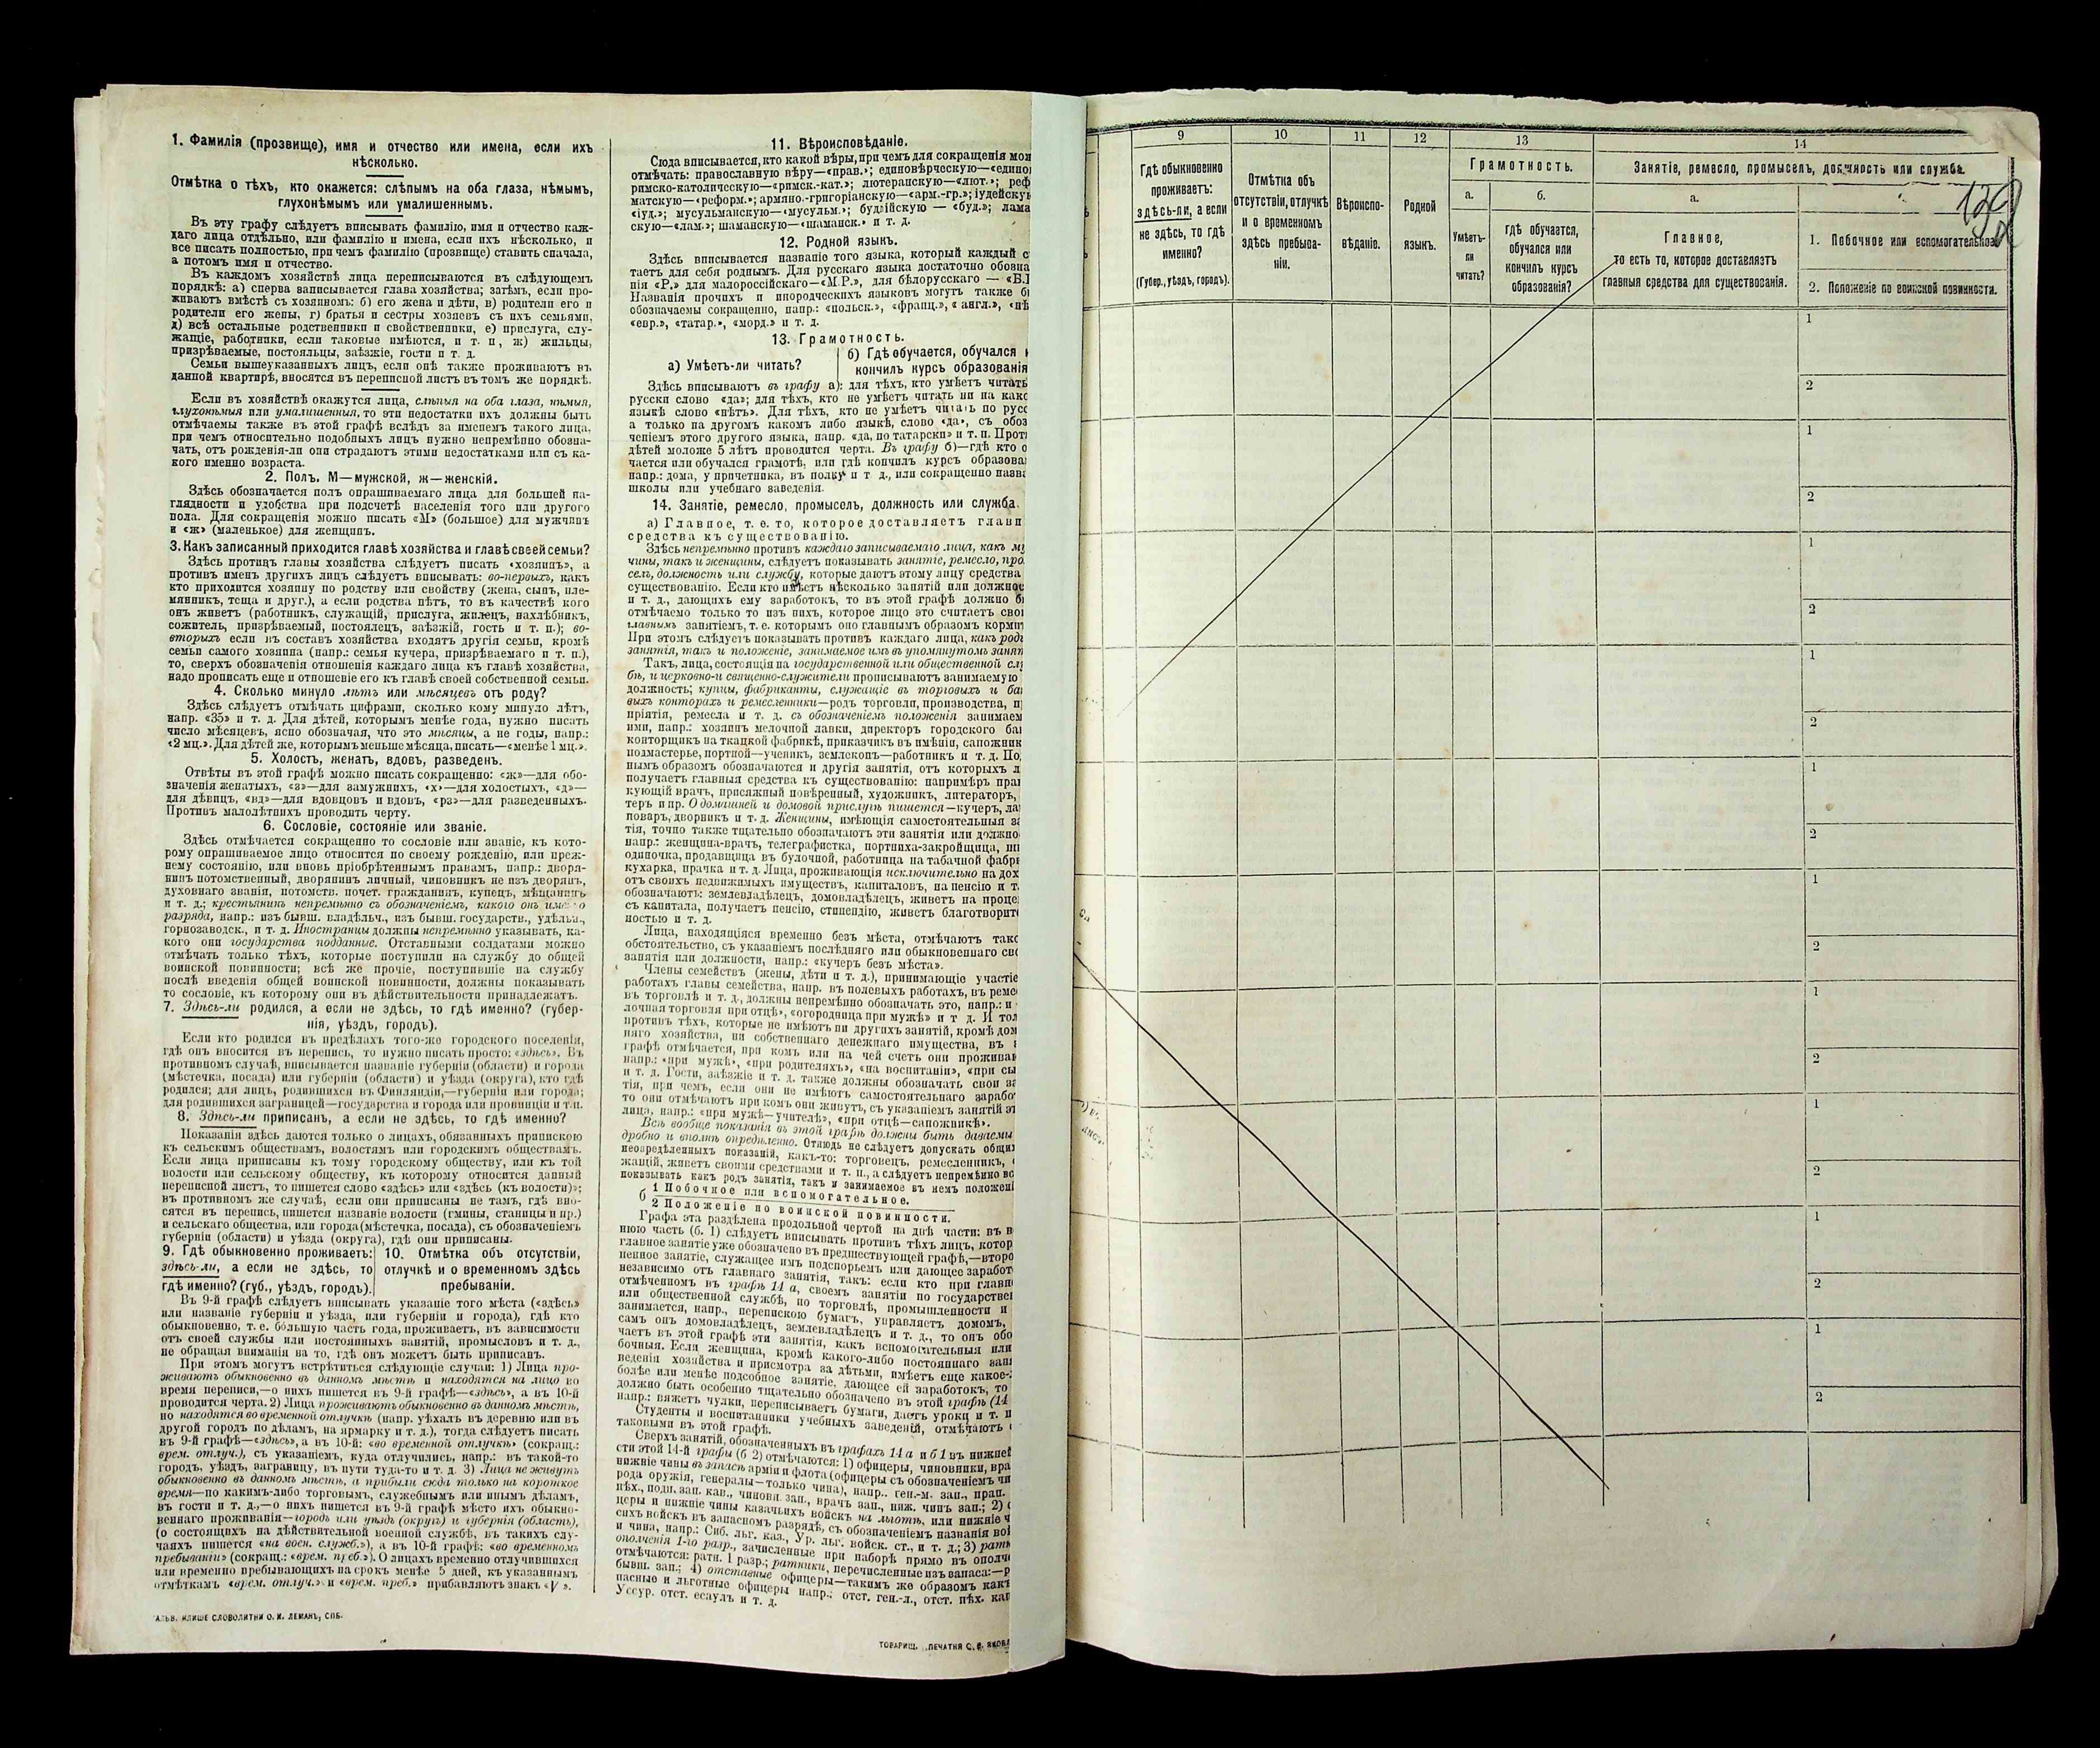 1. Фамилія (прозвище), имя и отчество или имена, если ихъ
нѣсколько.
Отмѣтка о тѣхъ, кто окажется: слѣпымъ на оба глаза, нѣмымъ,
глухонѣмымъ или умалишеннымъ.
Въ эту графу слѣдуетъ вписывать фамилію, имя и отчество каж-
даго лица отдѣльно, или фамилію и имена, если ихъ нѣсколько, и
все писать полностью, при чемъ фамилію (прозвище) ставить сначала,
а потомъ имя и отчество.
Въ каждомъ хозяйствѣ лица переписываются въ слѣдующемъ
порядкѣ: а) сперва записывается глава хозяйства; затѣмъ, если про-
живаютъ вмѣстѣ съ хозяиномъ: б) его жена и дѣти, в) родители его и
родители его жены, г) братья и сестры хозяевъ съ ихъ семьями,
д) всѣ остальные родственники и свойственники, е) прислуга, слу-
жащіе, работники, если таковые имѣются, и т. п, ж) жильцы,
призрѣваемые, постояльцы, заѣзжіе, гости и т. д.
Семьи вышеуказанныхъ лицъ, если онѣ также проживаютъ въ
данной квартирѣ, вносятся въ переписной листъ въ томъ же порядкѣ.
Если въ хозяйствѣ окажутся лица, слѣпыя на оба глаза, нѣмыя,
глухонѣмыя или умалишенныя, то эти недостатки ихъ должны быть
отмѣчаемы также въ этой графѣ вслѣдъ за именемъ такого лица,
при чемъ относительно подобныхъ лицъ нужно непремѣнно обозна-
чать, отъ рожденія-ли они страдаютъ этими недостатками или съ ка-
кого именно возраста.
2. Полъ. М—мужской, ж—женскій.
Здѣсь обозначается полъ опрашиваемаго лица для большей на-
глядности и удобства при подсчетѣ населенія того или другого
пола. Для сокращенія можно писать «М» (большое) для мужчинъ
и «ж» (маленькое) для женщинъ.
3. Какъ записанный приходится главѣ хозяйства и главѣ своей семьи?
Здѣсь противъ главы хозяйства слѣдуетъ писать «хозяинъ», а
противъ именъ другихъ лицъ слѣдуетъ вписывать: во-первыхъ, какъ
кто приходится хозяину по родству или свойству (жена, сынъ, пле-
мянникъ, теща и друг.), а если родства нѣтъ, то въ качествѣ кого
онъ живетъ (работникъ, служащій, прислуга, жилецъ, нахлѣбникъ,
сожитель, призрѣваемый, постоялецъ, заѣзжій, гость и т. п.); во-
вторыхъ если въ составъ хозяйства входятъ другія семьи, кромѣ
семьи самого хозяина (напр.: семья кучера, призрѣваемаго и т. п.),
то, сверхъ обозначенія отношенія каждаго лица къ главѣ хозяйства,
надо прописать еще и отношеніе его къ главѣ своей собственной семьи.
4. Сколько минуло лѣтъ или мѣсяцевъ отъ роду?
Здѣсь слѣдуетъ отмѣчать цифрами, сколько кому минуло лѣтъ,
напр. «35» и т. д. Для дѣтей, которымъ менѣе года, нужно писать
число мѣсяцевъ, ясно обозначая, что это мѣсяцы, а не годы, напр.:
«2 мц.». Для дѣтей же, которымъ меньше мѣсяца, писать—«менѣе 1 мц.».
5. Холостъ, женатъ, вдовъ, разведенъ.
Отвѣты въ этой графѣ можно писать сокращенно: «ж»—для обо-
значенія женатыхъ, «з»—для замужнихъ, «х»—для холостыхъ, «д»—
для дѣвицъ, «вд»—для вдовцовъ и вдовъ, «рз»—для разведенныхъ.
Противъ малолѣтнихъ проводить черту.
6. Сословіе, состояніе или званіе.
Здѣсь отмѣчается сокращенно то сословіе или званіе, къ кото-
рому опрашиваемое лицо относится по своему рожденію, или преж-
нему состоянію, или вновь пріобрѣтеннымъ правамъ, напр.: дворя-
нинъ потомственный, дворянинъ личный, чиновникъ не изъ дворянъ,
духовнаго званія, потомств. почет. гражданинъ, купецъ, мѣщанинъ
и т. д.; крестьянинъ непремѣнно съ обозначеніемъ, какого онъ именно
разряда, напр.: изъ бывш. владѣльч., изъ бывш. государств., удѣльн.,
горнозаводск., и т. д. Иностранцы должны непремѣнно указывать, ка-
кого они государства подданные. Отставными солдатами можно
отмѣчать только тѣхъ, которые поступили на службу до общей
воинской повинности; всѣ же прочіе, поступившіе на службу
послѣ введенія общей воинской повинности, должны показывать
то сословіе, къ которому они въ дѣйствительности принадлежатъ.
7. Здѣсь-ли родился, а если не здѣсь, то гдѣ именно? (губер-
нія, уѣздъ, городъ).
Если кто родился въ предѣлахъ того-же городского поселенія,
гдѣ онъ вносится въ перепись, то нужно писать просто: «здѣсь». Въ
противномъ случаѣ, вписывается названіе губерніи (области) и города
(мѣстечка, посада) или губерніи (области) и уѣзда (округа), кто гдѣ
родился; для лицъ, родившихся въ Финляндіи,—губерніи или города;
для родившихся заграницей—государства и города или провинціи и т.п.
8. Здѣсь-ли приписанъ, а если не здѣсь, то гдѣ именно?
Показанія здѣсь даются только о лицахъ, обязанныхъ припискою
къ сельскимъ обществамъ, волостямъ или городскимъ обществамъ.
Если лица приписаны къ тому городскому обществу, или къ той
волости или сельскому обществу, къ которому относится данный
переписной листъ, то пишется слово «здѣсь» или «здѣсь (къ волости)»;
въ противномъ же случаѣ, если они приписаны не тамъ, гдѣ вно-
сятся въ перепись, пишется названіе волости (гмины, станицы и пр.)
и сельскаго общества, или города (мѣстечка, посада), съ обозначеніемъ
губерніи (области) и уѣзда (округа), гдѣ они приписаны.
9. Гдѣ обыкновенно проживаетъ:
здѣсь-ли, а если не здѣсь, то
гдѣ именно? (губ., уѣздъ, городъ).
10. Отмѣтка объ отсутствіи,
отлучкѣ и о временномъ здѣсь
пребываніи.
Въ 9-й графѣ слѣдуетъ вписывать указаніе того мѣста («здѣсь»
или названіе губерніи и уѣзда, или губерніи и города), гдѣ кто
обыкновенно, т. е. бо́льшую часть года, проживаетъ, въ зависимости
отъ своей службы или постоянныхъ занятій, промысловъ и т. д.,
не обращая вниманія на то, гдѣ онъ можетъ быть приписанъ.
При этомъ могутъ встрѣтиться слѣдующіе случаи: 1) Лица про-
живаютъ обыкновенно въ данномъ мѣстѣ и находятся на лицо во
время переписи,—о нихъ пишется въ 9-й графѣ—«здѣсь», а въ 10-й
проводится черта. 2) Лица проживаютъ обыкновенно въ данномъ мѣстѣ,
но находятся во временной отлучкѣ (напр. уѣхалъ въ деревню или въ
другой городъ по дѣламъ, на ярмарку и т. д.), тогда слѣдуетъ писать
въ 9-й графѣ—«здѣсь», а въ 10-й: «во временной отлучкѣ» (сокращ.:
врем. отлуч.), съ указаніемъ, куда отлучились, напр.: въ такой-то
городъ, уѣздъ, заграницу, въ пути туда-то и т. д. 3) Лица не живутъ
обыкновенно въ данномъ мѣстѣ, а прибыли сюда только на короткое
время—по какимъ-либо торговымъ, служебнымъ или инымъ дѣламъ,
въ гости и т. д.,—о нихъ пишется въ 9-й графѣ мѣсто ихъ обыкно-
веннаго проживанія—городъ или уѣздъ (округъ) и губернія (область),
(о состоящихъ на дѣйствительной военной службѣ, въ такихъ слу-
чаяхъ пишется «на воен. служб.»), а въ 10-й графѣ: «во временномъ
пребываніи» (сокращ.: «врем. преб.»). О лицахъ временно отлучившихся
или временно пребывающихъ на срокъ менѣе 5 дней, къ указаннымъ
отмѣткамъ «врем. отлуч.» и «врем. преб.» прибавляютъ знакъ «V».
КЛИШЕ СЛОВОЛИТНИ О. И. ЛЕМАНЪ, СПБ.
11. Вѣроисповѣданіе.
Сюда вписывается, кто какой вѣры, при чемъ для сокращенія мож
отмѣчать: православную вѣру—«прав.»; единовѣрческую—«едино
римско-католическую—«римск.-кат.»; лютеранскую—«лют.»; реф
матскую—«реформ.»; армяно.-григоріанскую—«арм.-гр.»; іудейскую
«іуд.»; мусульманскую—«мусульм.»; буддійскую — «буд.»; лама
скую—«лам.»; шаманскую—«шаманск.» и т. д.
12. Родной языкъ.
Здѣсь вписывается названіе того языка, который каждый с
таетъ для себя роднымъ. Для русскаго языка достаточно обозна
нія «Р.» для малороссійскаго—«М.Р.», для бѣлорусскаго — «Б.
Названія прочихъ и инородческихъ языковъ могутъ также б
обозначаемы сокращенно, напр.: «польск.», «франц.», «англ.», «нѣ
«евр.», «татар.», «морд.» и т. д.
13. Грамотность.
а) Умѣетъ-ли читать?
б) Гдѣ обучается, обучался
кончилъ курсъ образованія
Здѣсь вписываютъ въ графу а): для тѣхъ, кто умѣетъ читать
русски слово «да»; для тѣхъ, кто не умѣетъ читать ни на како
языкѣ слово «нѣтъ». Для тѣхъ, кто не умѣетъ читать по русс
а только на другомъ какомъ либо языкѣ, слово «да», съ обоз
ченіемъ этого другого языка, напр. «да, по татарски» и т. п. Прот
дѣтей моложе 5 лѣтъ проводится черта. Въ графу б)—гдѣ кто о
чается или обучался грамотѣ, или гдѣ кончилъ курсъ образова
напр.: дома, у причетника, въ полку и т. д., или сокращенно назва
школы или учебнаго заведенія.
14. Занятіе, ремесло, промыселъ, должность или служба.
а) Главное, т. е. то, которое доставляетъ главн
средства къ существованію.
Здѣсь непремѣнно противъ каждаго записываемаго лица, какъ му
чины, такъ и женщины, слѣдуетъ показывать занятіе, ремесло, про
селъ, должность или службу, которые даютъ этому лицу средства
существованію. Если кто имѣетъ нѣсколько занятій или должнос
и т. д., дающихъ ему заработокъ, то въ этой графѣ должно б
отмѣчаемо только то изъ нихъ, которое лицо это считаетъ сво
главнымъ занятіемъ, т. е. которымъ оно главнымъ образомъ кормит
При этомъ слѣдуетъ показывать противъ каждаго лица, какъ родъ
занятія, такъ и положеніе, занимаемое имъ въ упомянутомъ занят
Такъ, лица, состоящія на государственной или общественной слу
бѣ, и церковно-и священно-служители прописываютъ занимаемую
должность; купцы, фабриканты, служащіе въ торговыхъ и бан
выхъ конторахъ и ремесленники—родъ торговли, производства, п
пріятія, ремесла и т. д. съ обозначеніемъ положенія занимаем
ими, напр.: хозяинъ мелочной лавки, директоръ городского бан
конторщикъ на ткацкой фабрикѣ, приказчикъ въ имѣніи, сапожник
подмастерье, портной—ученикъ, землекопъ—работникъ и т. д. По
нымъ образомъ обозначаются и другія занятія, отъ которыхъ л
получаетъ главныя средства къ существованію: напримѣръ прак
кующій врачъ, присяжный повѣренный, художникъ, литераторъ,
теръ и пр. О домашней и домовой прислугѣ пишется—кучеръ, ла
поваръ, дворникъ и т. д. Женщины, имѣющія самостоятельныя за
тія, точно также тщательно обозначаютъ эти занятія или должно
напр.: женщина-врачъ, телеграфистка, портниха-закройщица, ш
одиночка, продавщица въ булочной, работница на табачной фабр
кухарка, прачка и т. д. Лица, проживающія исключительно на дох
отъ своихъ недвижимыхъ имуществъ, капиталовъ, на пенсію и т.
обозначаютъ: землевладѣлецъ, домовладѣлецъ, живетъ на проце
съ капитала, получаетъ пенсію, стипендію, живетъ благотворите
ностью и т. д.
Лица, находящіяся временно безъ мѣста, отмѣчаютъ тако
обстоятельство, съ указаніемъ послѣдняго или обыкновеннаго сво
занятія или должности, напр.: «кучеръ безъ мѣста».
Члены семействъ (жены, дѣти и т. д.), принимающіе участіе
работахъ главы семейства, напр. въ полевыхъ работахъ, въ реме
въ торговлѣ и т. д., должны непремѣнно обозначать это, напр.: и
лочная торговля при отцѣ», «огородница при мужѣ» и т д. И тол
противъ тѣхъ, которые не имѣютъ ни другихъ занятій, кромѣ дом
няго хозяйства, ни собственнаго денежнаго имущества, въ
графѣ отмѣчается, при комъ или на чей счетъ они проживаю
напр.: «при мужѣ», «при родителяхъ», «на воспитаніи», «при сы
и т. д. Гости, заѣзжіе и т. д. также должны обозначать свои за
тія, при чемъ, если они не имѣютъ самостоятельнаго заработ
то они отмѣчаютъ при комъ они живутъ, съ указаніемъ занятій эт
лица, напр.: «при мужѣ—учителѣ», «при отцѣ—сапожникѣ».
Всѣ вообще показанія въ этой графѣ должны быть даваемы
дробно и вполнѣ опредѣленно. Отнюдь не слѣдуетъ допускать общи
неопредѣленныхъ показаній, какъ-то: торговецъ, ремесленникъ,
жащій, живетъ своими средствами и т. п., а слѣдуетъ непремѣнно вс
показывать какъ родъ занятія, такъ и занимаемое въ немъ положені
б 1 Побочное или вспомогательное.
2 Положеніе по воинской повинности.
Графа эта раздѣлена продольной чертой на двѣ части: въ в
нюю часть (б. 1) слѣдуетъ вписывать противъ тѣхъ лицъ, котор
главное занятіе уже обозначено въ предшествующей графѣ,—второ
пенное занятіе, служащее имъ подспорьемъ или дающее заработ
независимо отъ главнаго занятія, такъ: если кто при главн
отмѣченномъ въ графѣ 14 а, своемъ занятіи по государствен
или общественной службѣ, по торговлѣ, промышленности и
занимается, напр., перепискою бумагъ, управляетъ домомъ,
самъ онъ домовладѣлецъ, землевладѣлецъ и т. д., то онъ обо
чаетъ въ этой графѣ эти занятія, какъ вспомогательныя или
бочныя. Если женщина, кромѣ какого-либо постояннаго зан
веденія хозяйства и присмотра за дѣтьми, имѣетъ еще какое-
болѣе или менѣе подсобное занятіе, дающее ей заработокъ, то
должно быть особенно тщательно обозначено въ этой графѣ (14
напр.: вяжетъ чулки, переписываетъ бумаги, даетъ уроки и т. п
Студенты и воспитанники учебныхъ заведеній, отмѣчаютъ
таковыми въ этой графѣ.
Сверхъ занятій, обозначенныхъ въ графахъ 14 а и б 1 въ нижней
сти этой 14-й графы (б 2) отмѣчаются: 1) офицеры, чиновники, вра
нижніе чины въ запасѣ арміи и флота (офицеры съ обозначеніемъ чи
рода оружія, генералы—только чина), напр.. ген.-м. зап., прап.
пѣх., подп. зап. кав., чиновн. зап., врачъ зап., ниж. чинъ зап.; 2)
церы и нижніе чины казачьихъ войскъ на льготѣ, или нижніе ч
сихъ войскъ въ запасномъ разрядѣ, съ обозначеніемъ названія вой
и чина, напр.: Сиб. льг. каз., Ур. льг. войск. ст., и т. д.; 3) ратн
ополченія 1-го разр., зачисленные при наборѣ прямо въ ополч
отмѣчаются: ратн. 1 разр.; ратники, перечисленные изъ запаса:—р
бывш. зап.; 4) отставные офицеры—такимъ же образомъ какъ
пасные и льготные офицеры напр.: отст. ген.-л., отст. пѣх. кап
Уссур. отст. есаулъ и т. д.
ТОВАРИЩ. ПЕЧАТНЯ С. П. ЯКОВЛ
9
10
11
12
13
14
Гдѣ обыкновенно
проживаетъ:
здѣсь-ли, а если
не здѣсь, то гдѣ
именно?
(Губер., уѣздъ, городъ).
Отмѣтка объ
отсутствіи, отлучкѣ
и о временномъ
здѣсь пребыва-
ніи.
Вѣроиспо-
вѣданіе.
Родной
языкъ.
Грамотность.
а.
Умѣетъ-
ли
читать?
б.
гдѣ обучается,
обучался или
кончилъ курсъ
образованія?
Занятіе, ремесло, промыселъ, должность или служба.
а.
Главное,
то есть то, которое доставляетъ
главныя средства для существованія.
1. Побочное или вспомогательное.
2. Положеніе по воинской повинности.
1
2
1
2
1
2
1
2
1
2
1
2
1
2
1
2
1
2
1
2